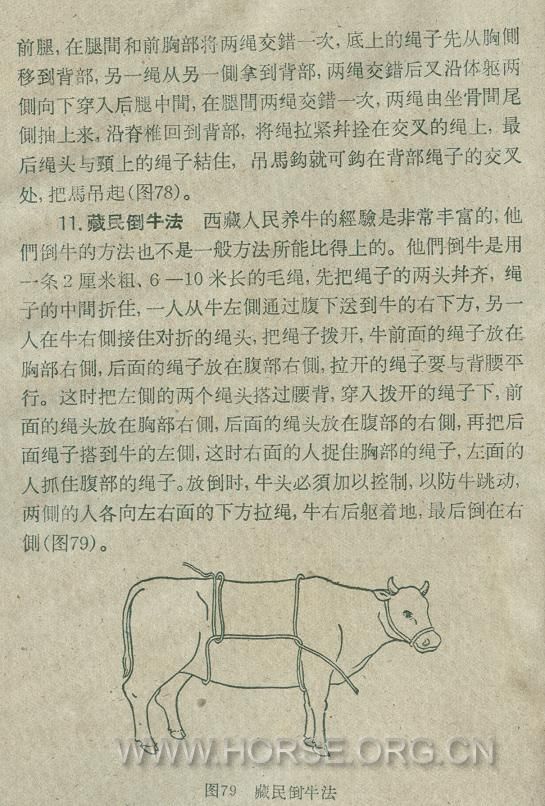 前腿，在腿間和前胸部将两绳交錯一次，底上的绳子先从胸侧
移到背部，另一绳从另一侧拿到背部，两绳交錯后又沿体躯两
侧向下穿入后腿中間，在腿間两绳交錯一次，两绳由坐骨間尾
侧抽上来，沿脊椎回到背部，将绳拉紧幷拴在交叉的绳上，最
后绳头与頸上的绳子結住，吊馬鈎就可鈎在背部绳子的交叉
处，把馬吊起(图78)。
11．藏民倒牛法　西藏人民养牛的經驗是非常丰富的，他
們倒牛的方法也不是一般方法所能比得上的。他們倒牛是用
一条2厘米粗、6—10米长的毛绳，先把绳子的两头幷齐，绳
子的中間折住，一人从牛左側通过腹下送到牛的右下方，另一
人在牛右側接住对折的绳头，把绳子拨开，牛前面的绳子放在
胸部右側，后面的绳子放在腹部右側，拉开的绳子要与背腰平
行。这时把左側的两个绳头搭过腰背，穿入拨开的绳子下，前
面的绳头放在胸部右側，后面的绳头放在腹部的右側，再把后
面绳子搭到牛的左側，这时右面的人捉住胸部的绳子，左面的
人抓住腹部的绳子。放倒时，牛头必須加以控制，以防牛跳动，
两側的人各向左右面的下方拉绳，牛右后躯着地，最后倒在右
側(图79)。
WWW.HORSE.ORG.CN
图79　藏民倒牛法